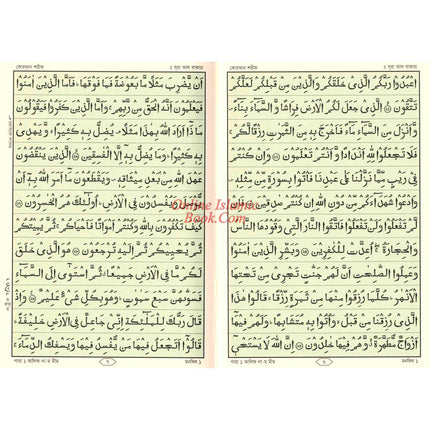 কোরআন শরীফ ২ সূরা আল বাকারা
اعْبُدُوْا رَبَّكُمُ الَّذِيْ خَلَقَكُمْ وَالَّذِيْنَ مِنْ قَبْلِكُمْ لَعَلَّكُمْ
تَتَّقُوْنَ ۝ الَّذِيْ جَعَلَ لَكُمُ الْاَرْضَ فِرَاشًا وَّالسَّمَآءَ بِنَآءً
وَّاَنْزَلَ مِنَ السَّمَآءِ مَآءً فَاَخْرَجَ بِهٖ مِنَ الثَّمَرٰتِ رِزْقًا لَّكُمْ
فَلَا تَجْعَلُوْا لِلّٰهِ اَنْدَادًا وَّاَنْتُمْ تَعْلَمُوْنَ ۝ وَاِنْ كُنْتُمْ
فِيْ رَيْبٍ مِّمَّا نَزَّلْنَا عَلٰى عَبْدِنَا فَاْتُوْا بِسُوْرَةٍ مِّنْ مِّثْلِهٖ
وَادْعُوْا شُهَدَآءَكُمْ مِّنْ دُوْنِ اللّٰهِ اِنْ كُنْتُمْ صٰدِقِيْنَ ۝ فَاِنْ
لَّمْ تَفْعَلُوْا وَلَنْ تَفْعَلُوْا فَاتَّقُوا النَّارَ الَّتِيْ وَقُوْدُهَا النَّاسُ
وَالْحِجَارَةُ اُعِدَّتْ لِلْكٰفِرِيْنَ ۝ وَبَشِّرِ الَّذِيْنَ اٰمَنُوْا
وَعَمِلُوا الصّٰلِحٰتِ اَنَّ لَهُمْ جَنّٰتٍ تَجْرِيْ مِنْ تَحْتِهَا
الْاَنْهٰرُ كُلَّمَا رُزِقُوْا مِنْهَا مِنْ ثَمَرَةٍ رِّزْقًا قَالُوْا هٰذَا
الَّذِيْ رُزِقْنَا مِنْ قَبْلُ وَاُتُوْا بِهٖ مُتَشَابِهًا وَلَهُمْ فِيْهَآ
اَزْوَاجٌ مُّطَهَّرَةٌ وَّهُمْ فِيْهَا خٰلِدُوْنَ ۝ اِنَّ اللّٰهَ لَا يَسْتَحْيٖٓ
পারা ১ আলিফ লা-ম মীম ৬ মনযিল ১
কোরআন শরীফ ২ সূরা আল বাকারা
اَنْ يَّضْرِبَ مَثَلًا مَّا بَعُوْضَةً فَمَا فَوْقَهَا فَاَمَّا الَّذِيْنَ اٰمَنُوْا
فَيَعْلَمُوْنَ اَنَّهُ الْحَقُّ مِنْ رَّبِّهِمْ وَاَمَّا الَّذِيْنَ كَفَرُوْا فَيَقُوْلُوْنَ
مَاذَآ اَرَادَ اللّٰهُ بِهٰذَا مَثَلًا يُضِلُّ بِهٖ كَثِيْرًا وَّيَهْدِيْ
بِهٖ كَثِيْرًا وَمَا يُضِلُّ بِهٖٓ اِلَّا الْفٰسِقِيْنَ ۝ الَّذِيْنَ يَنْقُضُوْنَ
عَهْدَ اللّٰهِ مِنْ بَعْدِ مِيْثَاقِهٖ وَيَقْطَعُوْنَ مَآ اَمَرَ اللّٰهُ بِهٖٓ اَنْ
يُّوْصَلَ وَيُفْسِدُوْنَ فِي الْاَرْضِ اُولٰٓئِكَ هُمُ الْخٰسِرُوْنَ ۝
كَيْفَ تَكْفُرُوْنَ بِاللّٰهِ وَكُنْتُمْ اَمْوَاتًا فَاَحْيَاكُمْ ثُمَّ يُمِيْتُكُمْ
ثُمَّ يُحْيِيْكُمْ ثُمَّ اِلَيْهِ تُرْجَعُوْنَ ۝ هُوَ الَّذِيْ خَلَقَ
لَكُمْ مَّا فِي الْاَرْضِ جَمِيْعًا ثُمَّ اسْتَوٰٓى اِلَى السَّمَآءِ
فَسَوّٰىهُنَّ سَبْعَ سَمٰوٰتٍ وَهُوَ بِكُلِّ شَيْءٍ عَلِيْمٌ ۝ وَاِذْ
قَالَ رَبُّكَ لِلْمَلٰٓئِكَةِ اِنِّيْ جَاعِلٌ فِي الْاَرْضِ خَلِيْفَةً
قَالُوْٓا اَتَجْعَلُ فِيْهَا مَنْ يُّفْسِدُ فِيْهَا وَيَسْفِكُ الدِّمَآءَ
পারা ১ আলিফ লা-ম মীম ৭ মনযিল ১
Online Islamic
Book.Com